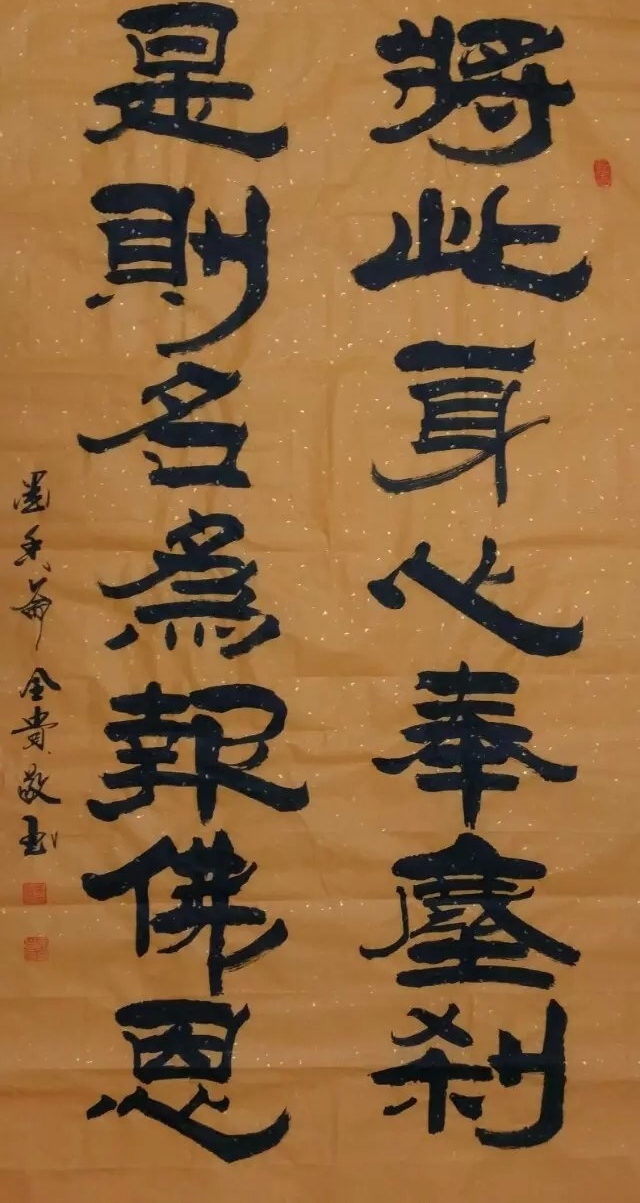 將此身心奉塵刹
是則名爲報佛恩
墨香齋金貴敬書